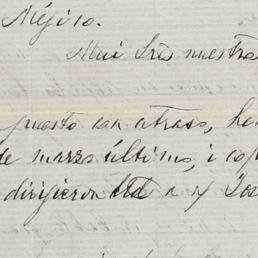 Méjico.
Mui Srs nuestro
puesto con atraso, he
de marzo último, i cop
dirijieron a